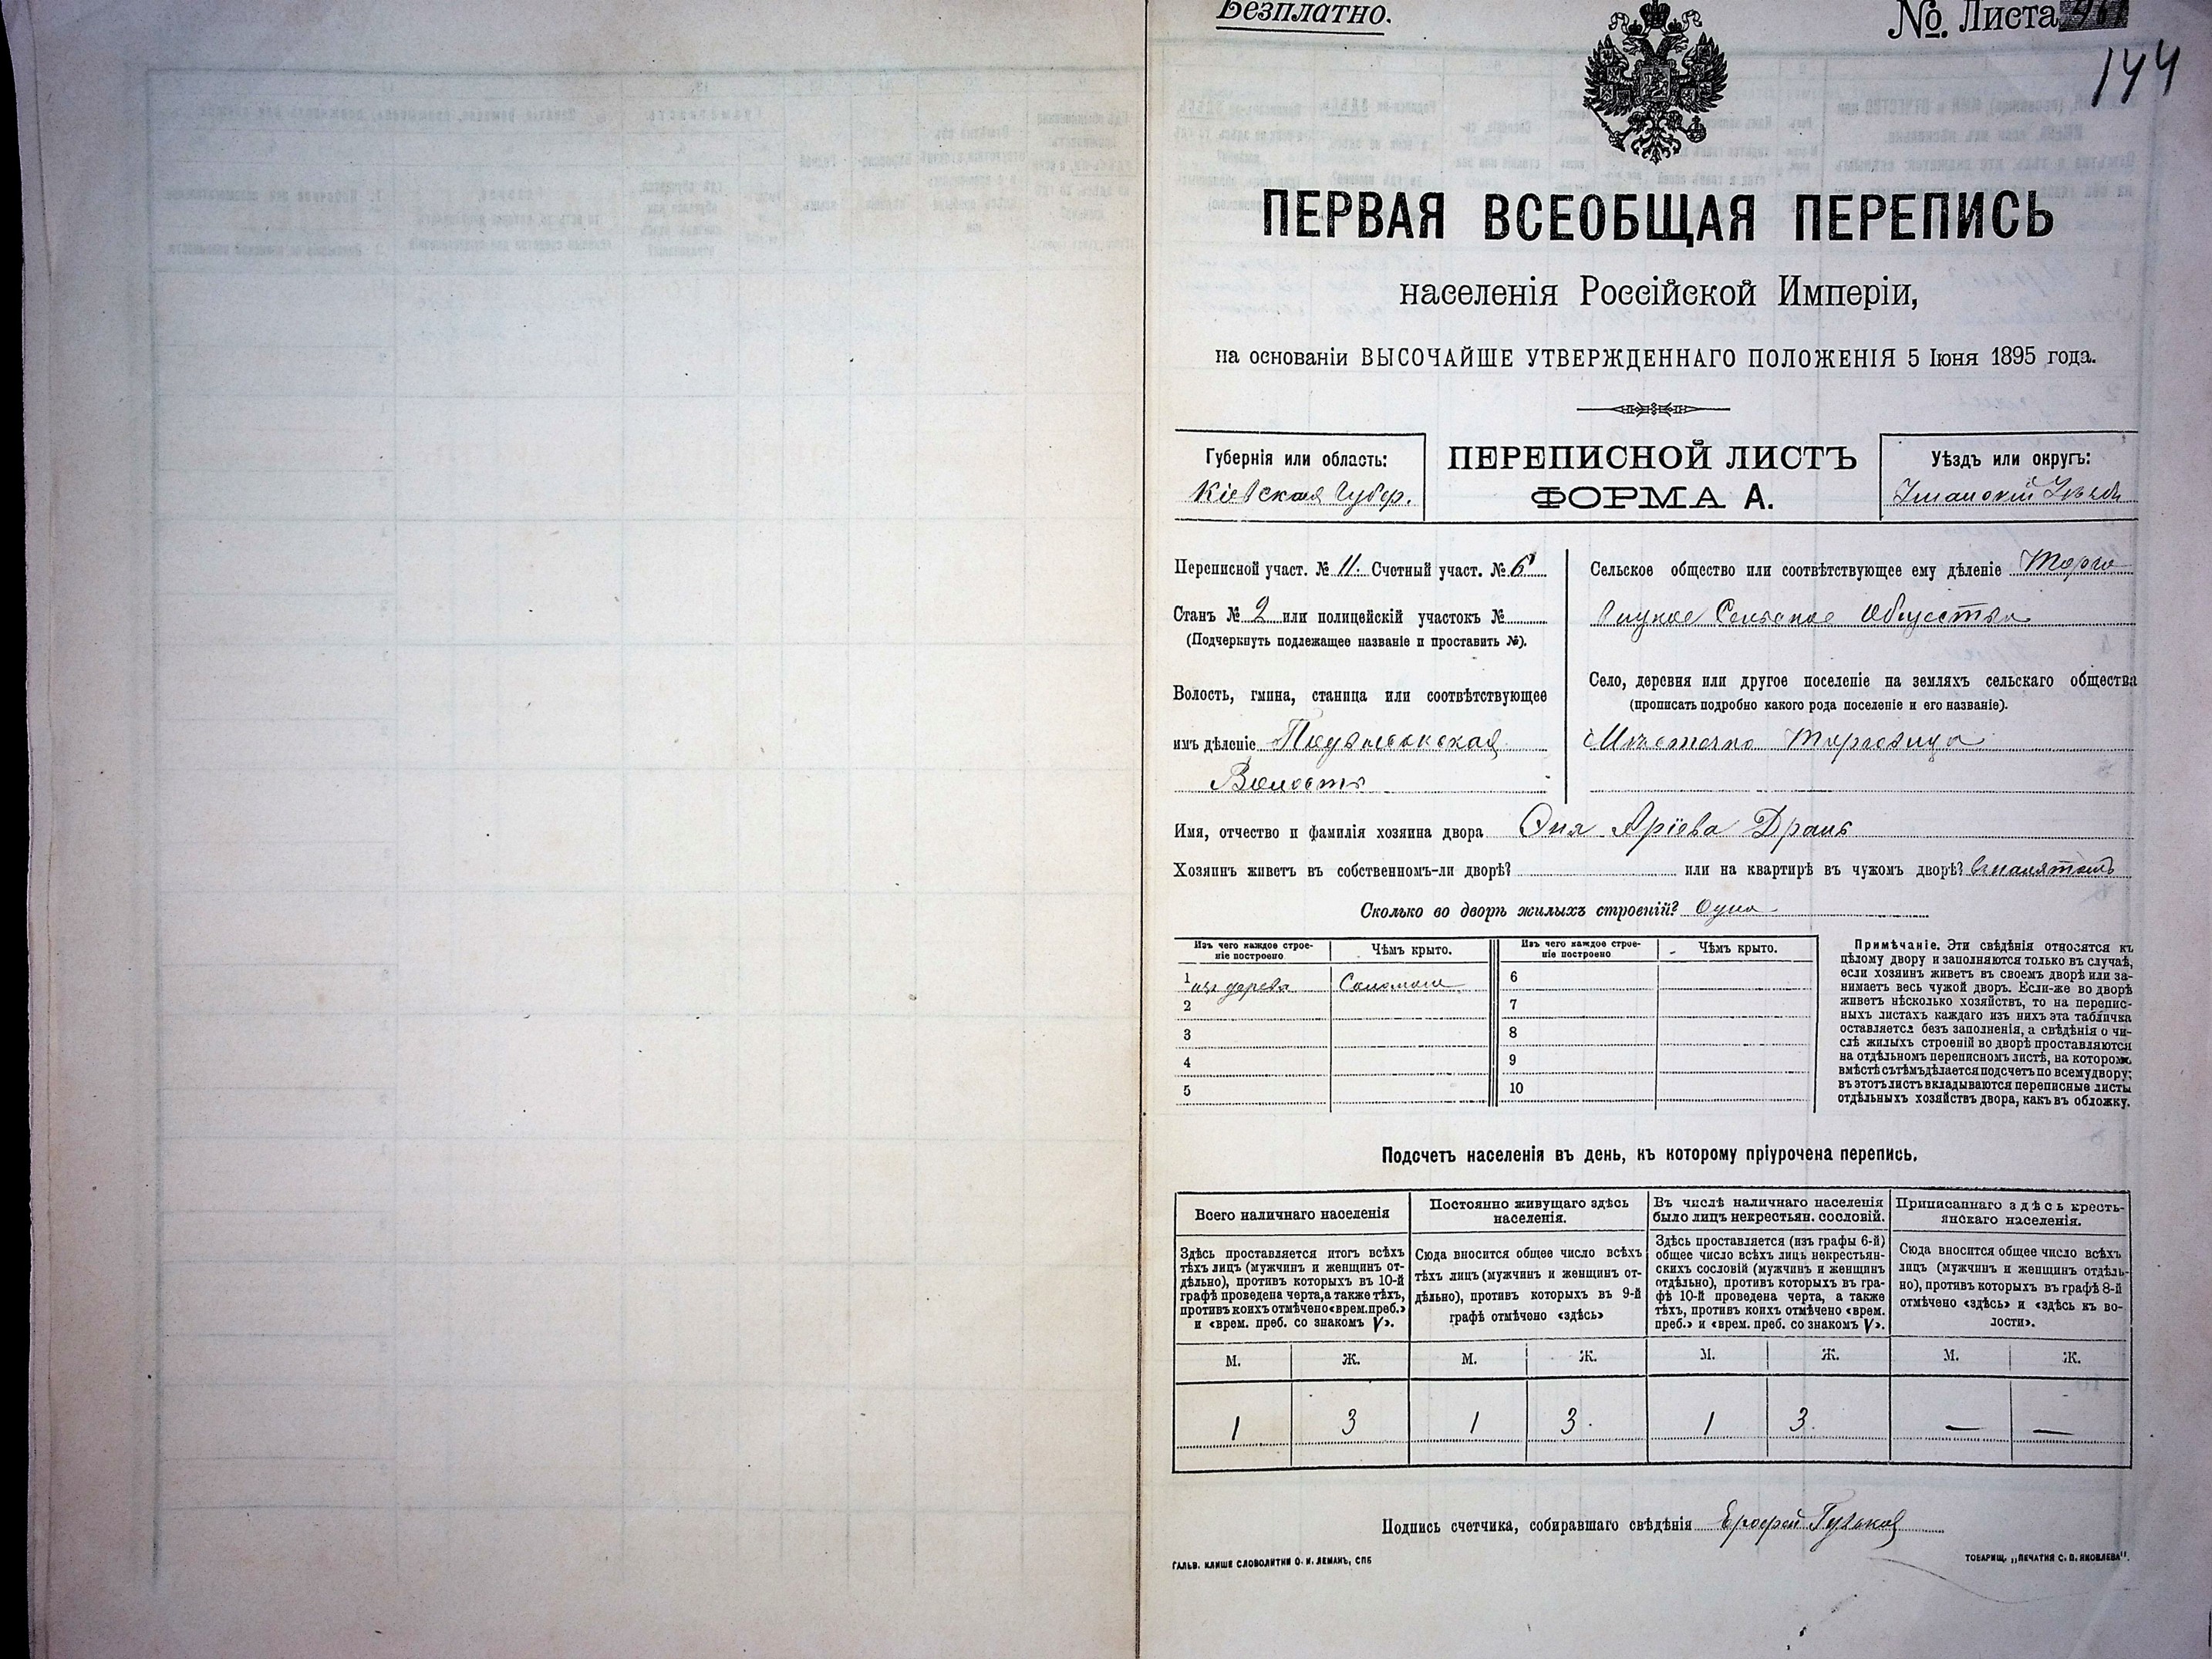 Безплатно.
№. Листа
144
ПЕРВАЯ ВСЕОБЩАЯ ПЕРЕПИСЬ
населенія Россійской Имперіи,
на основаніи ВЫСОЧАЙШЕ УТВЕРЖДЕННАГО ПОЛОЖЕНІЯ 5 Іюня 1895 года.
Губернія или область:
Кіевская Губер.
ПЕРЕПИСНОЙ ЛИСТЪ
ФОРМА А.
Уѣздъ или округъ:
Уманскій Уѣздъ
Переписной участ. № 11. Счетный участ. № 6
Станъ № 2 или полицейскій участокъ №
(Подчеркнуть подлежащее названіе и проставить №).
Волость, гмина, станица или соотвѣтствующее
имъ дѣленіе
Волость
Сельское общество или соотвѣтствующее ему дѣленіе Торго
вицкое Сельское Общество
Село, деревня или другое поселеніе на земляхъ сельскаго общества
(прописать подробно какого рода поселеніе и его названіе).
Мѣстечко Торговица
Имя, отчество и фамилія хозяина двора Аріева
Хозяинъ живетъ въ собственномъ-ли дворѣ? или на квартирѣ въ чужомъ дворѣ? въ нанятомъ
Сколько во дворѣ жилыхъ строеній? Одна
Изъ чего каждое строе-
ніе построено
Чѣмъ крыто.
Изъ чего каждое строе-
ніе построено
Чѣмъ крыто.
1 изъ дерева Соломою
2
3
4
5
6
7
8
9
10
Примѣчаніе. Эти свѣдѣнія относятся къ
цѣлому двору и заполняются только въ случаѣ,
если хозяинъ живетъ въ своемъ дворѣ или за-
нимаетъ весь чужой дворъ. Если-же во дворѣ
живетъ нѣсколько хозяйствъ, то на перепис-
ныхъ листахъ каждаго изъ нихъ эта табличка
оставляется безъ заполненія, а свѣдѣнія о чи-
слѣ жилыхъ строеній во дворѣ проставляются
на отдѣльномъ переписномъ листѣ, на которомъ
вмѣстѣ съ тѣмъ дѣлается подсчетъ по всему двору;
въ этотъ листъ вкладываются переписные листы
отдѣльныхъ хозяйствъ двора, какъ въ обложку.
Подсчетъ населенія въ день, къ которому пріурочена перепись.
Всего наличнаго населенія
Здѣсь проставляется итогъ всѣхъ
тѣхъ лицъ (мужчинъ и женщинъ от-
дѣльно), противъ которыхъ въ 10-й
графѣ проведена черта, а также тѣхъ,
противъ коихъ отмѣчено «врем. преб.»
и «врем. преб. со знакомъ V».
Постоянно живущаго здѣсь
населенія.
Сюда вносится общее число всѣхъ
тѣхъ лицъ (мужчинъ и женщинъ от-
дѣльно), противъ которыхъ въ 9-й
графѣ отмѣчено «здѣсь»
Въ числѣ наличнаго населенія
было лицъ некрестьян. сословій.
Здѣсь проставляется (изъ графы 6-й)
общее число всѣхъ лицъ некрестьян-
скихъ сословій (мужчинъ и женщинъ
отдѣльно), противъ которыхъ въ гра-
фѣ 10-й проведена черта, а также
тѣхъ, противъ коихъ отмѣчено «врем.
преб.» и «врем. преб. со знакомъ V».
Приписаннаго здѣсь кресть-
янскаго населенія.
Сюда вносится общее число всѣхъ
лицъ (мужчинъ и женщинъ отдѣль-
но), противъ которыхъ въ графѣ 8-й
отмѣчено «здѣсь» и «здѣсь къ во-
лости».
М. Ж. М. Ж. М. Ж. М. Ж.
1 3 1 3. 1 3. — —
Подпись счетчика, собиравшаго свѣдѣнія Ерофей
ГАЛЬВ. КЛИШЕ СЛОВОЛИТНИ О. И. ЛЕМАНЪ, СПБ
ТОВАРИЩ. „ПЕЧАТНЯ С. П. ЯКОВЛЕВА".